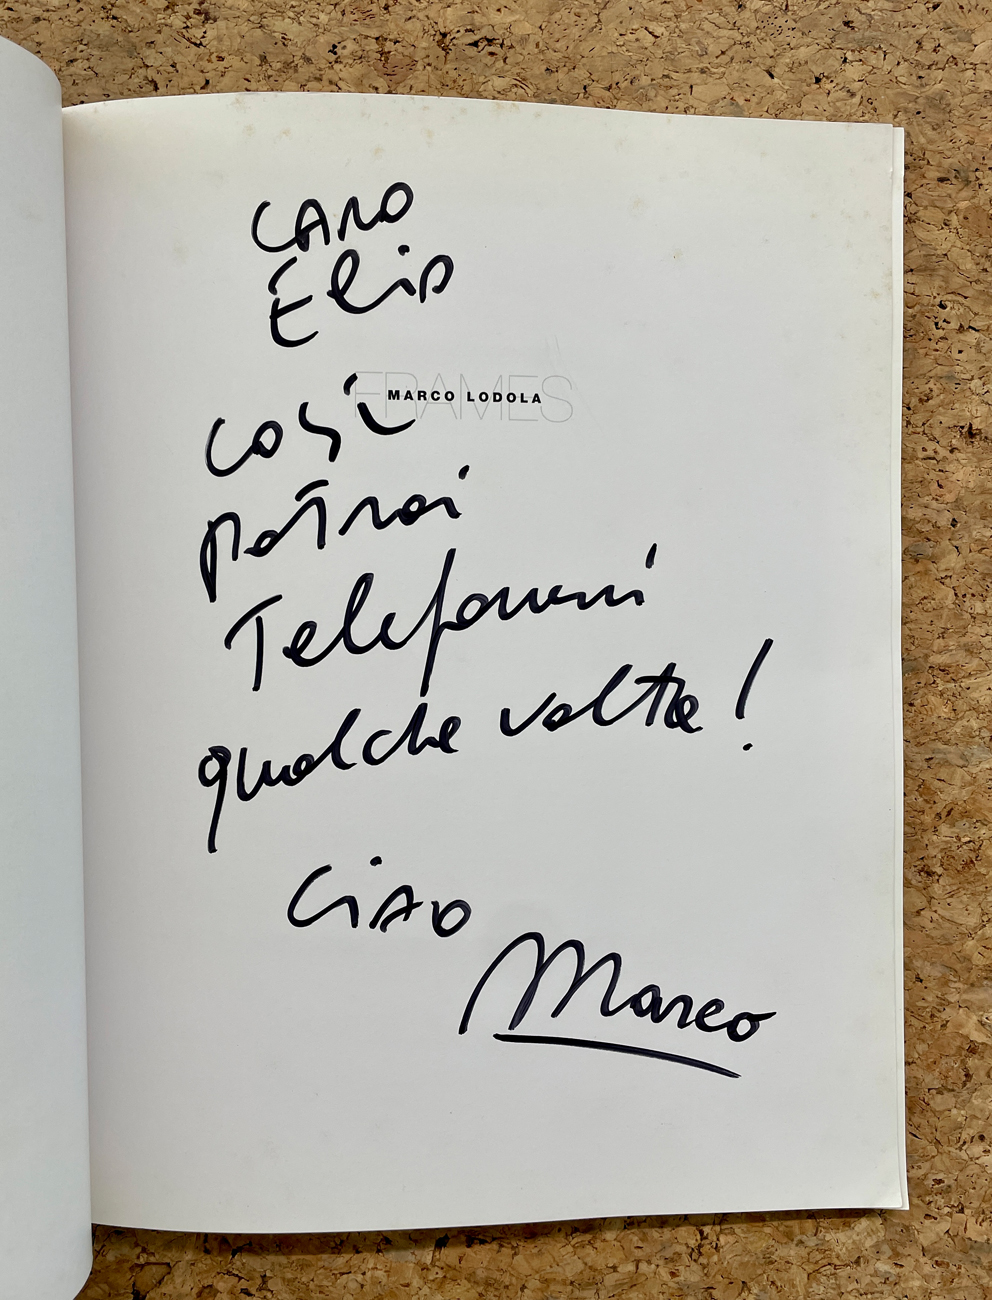 CARO
Elio
FRAMES
MARCO LODOLA
così
potrai
Telefonarmi
qualche volta!
CIAO
Marco